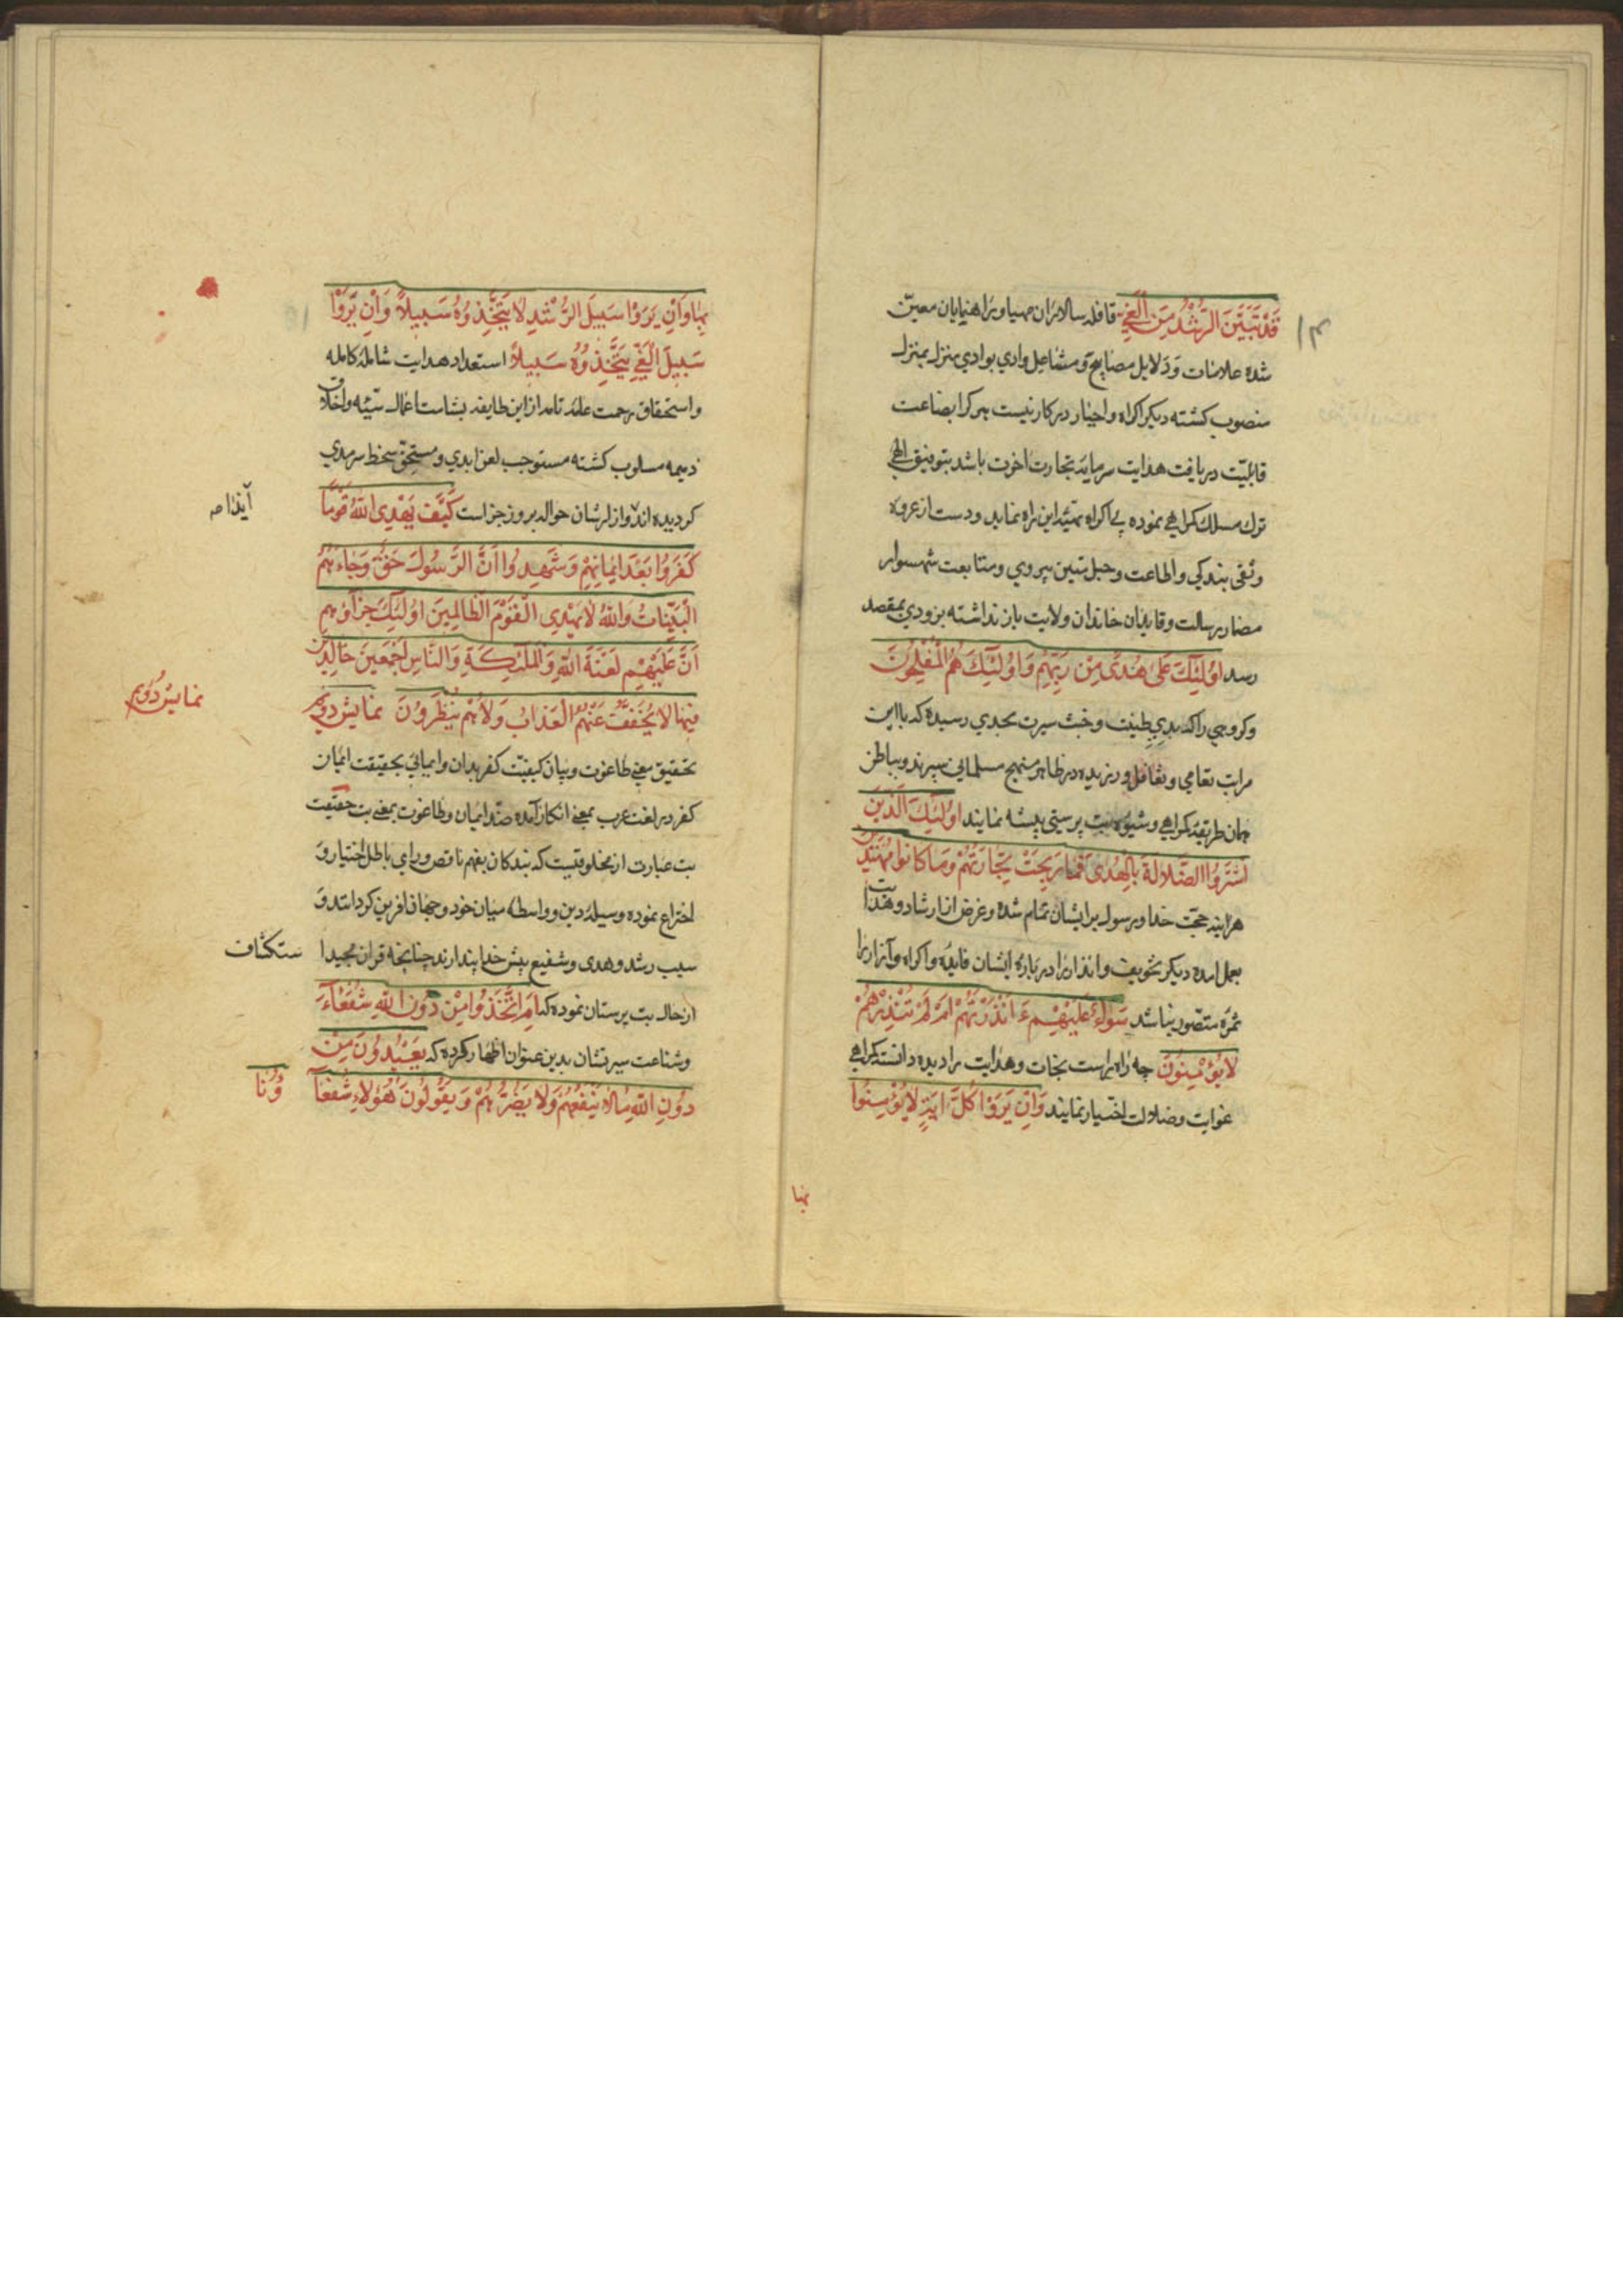 ۱۴
قَدْ تَبَيَّنَ الرُّشْدُ مِنَ الْغَيِّ قافله سالاران مهيا و راهنمايان معيّن
شده علامات و دلايل مصابيح و مشاعل وادي بوادي منزل بمنزل
منصوب كشته ديكر اكراه و اجبار دركار نيست هركرا بضاعت
قابليّت دريافت هدايت سرمايه تجارت اخرت باشد بتوفيق الهي
ترك مسلك كمراهي نموده بي اكراه تهيّه اين راه نمايد و دست از عروه
وثقى بندكي و اطاعت و حبل متين پيروي و متابعت شهسوار
مضمار رسالت و قايدان خاندان ولايت باز نداشته بزودي بمقصد
رسد اُولٰئِكَ عَلىٰ هُدىً مِنْ رَبِّهِمْ وَاُولٰئِكَ هُمُ الْمُفْلِحُونَ
وكروهي راكه بدي طينت و خبث سيرت بحدي رسيده كه بااين
مراتب تعامي و تغافل ورزيده در ظاهر منهج مسلماني سپرند و بباطن
همان طريقه كمراهي و شيوه بت پرستي پيشه نمايند اُولٰئِكَ الَّذينَ
اشْتَرَوُا الضَّلالَةَ بِالْهُدىٰ فَمَا رَبِحَتْ تِجَارَتُهُمْ وَمَا كَانُوا مُهْتَدِينَ
هراينه حجّت خدا و رسول برايشان تمام شده و غرض از ارشاد و هدايت
بعمل امده ديكر تخويف و انذار را درباره ايشان فايده و اكراه و آزار را
ثمره متصّور نباشد سَوَاءٌ عَلَيْهِمْ ءَاَنْذَرْتَهُمْ اَمْ لَمْ تُنْذِرْهُمْ
لَا يُؤْمِنُونَ چه راه راست نجات و هدايت را ديده دانسته كمراهي
غوايت و ضلالت اختيار نمايند وَاِنْ يَرَوْا كُلَّ ايَةٍ لَا يُؤْمِنُوا
بها
بِهَا وَاِنْ يَرَوْا سَبِيلَ الرُّشْدِ لَا يَتَّخِذُوهُ سَبِيلاً وَاِنْ يَرَوْا
سَبِيلَ الْغَيِّ يَتَّخِذُوهُ سَبِيلاً استعداد هدايت شامله كامله
و استحقاق رحمت عامّه تامه از اين طايفه بشامت اعمال سيّئه و اخلاق
ذميمه مسلوب كشته مستوجب لعن ابدي و مستحقّ سخط سرمدي
كرديده اند و ازارشان حواله بروز جزاست كَيْفَ يَهْدِى اللّٰهُ قَوْمًا
كَفَرُوا بَعْدَ ايمَانِهِمْ وَشَهِدُوا اَنَّ الرَّسُولَ حَقٌّ وَجَاءَهُمُ
الْبَيِّنَاتُ وَاللّٰهُ لَا يَهْدِي الْقَوْمَ الظَّالِمِينَ اُولٰئِكَ جَزَاؤُهُمْ
اَنَّ عَلَيْهِمْ لَعْنَةَ اللّٰهِ وَالْمَلٰئِكَةِ وَالنَّاسِ اَجْمَعِينَ خَالِدِينَ
فِيهَا لَا يُخَفَّفُ عَنْهُمُ الْعَذَابُ وَلَا هُمْ يُنْظَرُونَ نمايش دويم
تحقيق معني طاغوت و بيان كيفيّت كفر بدان و ايمائي بحقيقت ايمان
كفر در لغت عرب بمعني انكار آمده ضدّ ايمان و طاغوت بمعني بت حقيقت
بت عبارت از مخلوقيست كه بندكان بفهم ناقص و راي باطل اختيار و
اختراع نموده وسيله دين و واسطه ميان خود و جهان افرين كردانند و
سبب رشد و هدى و شفيع پيش خدا پندارند چنانچه قران مجيد
از حال بت پرستان نموده كه اَمِ اتَّخَذُوا مِنْ دُونِ اللّٰهِ شُفَعَاءَ
و شناعت سيرتشان بدين عنوان اظهار كرده كه يَعْبُدُونَ مِنْ
دُونِ اللّٰهِ مَا لَا يَنْفَعُهُمْ وَلَا يَضُرُّهُمْ وَيَقُولُونَ هٰؤُلَاءِ شُفَعَا
نمايش دويم